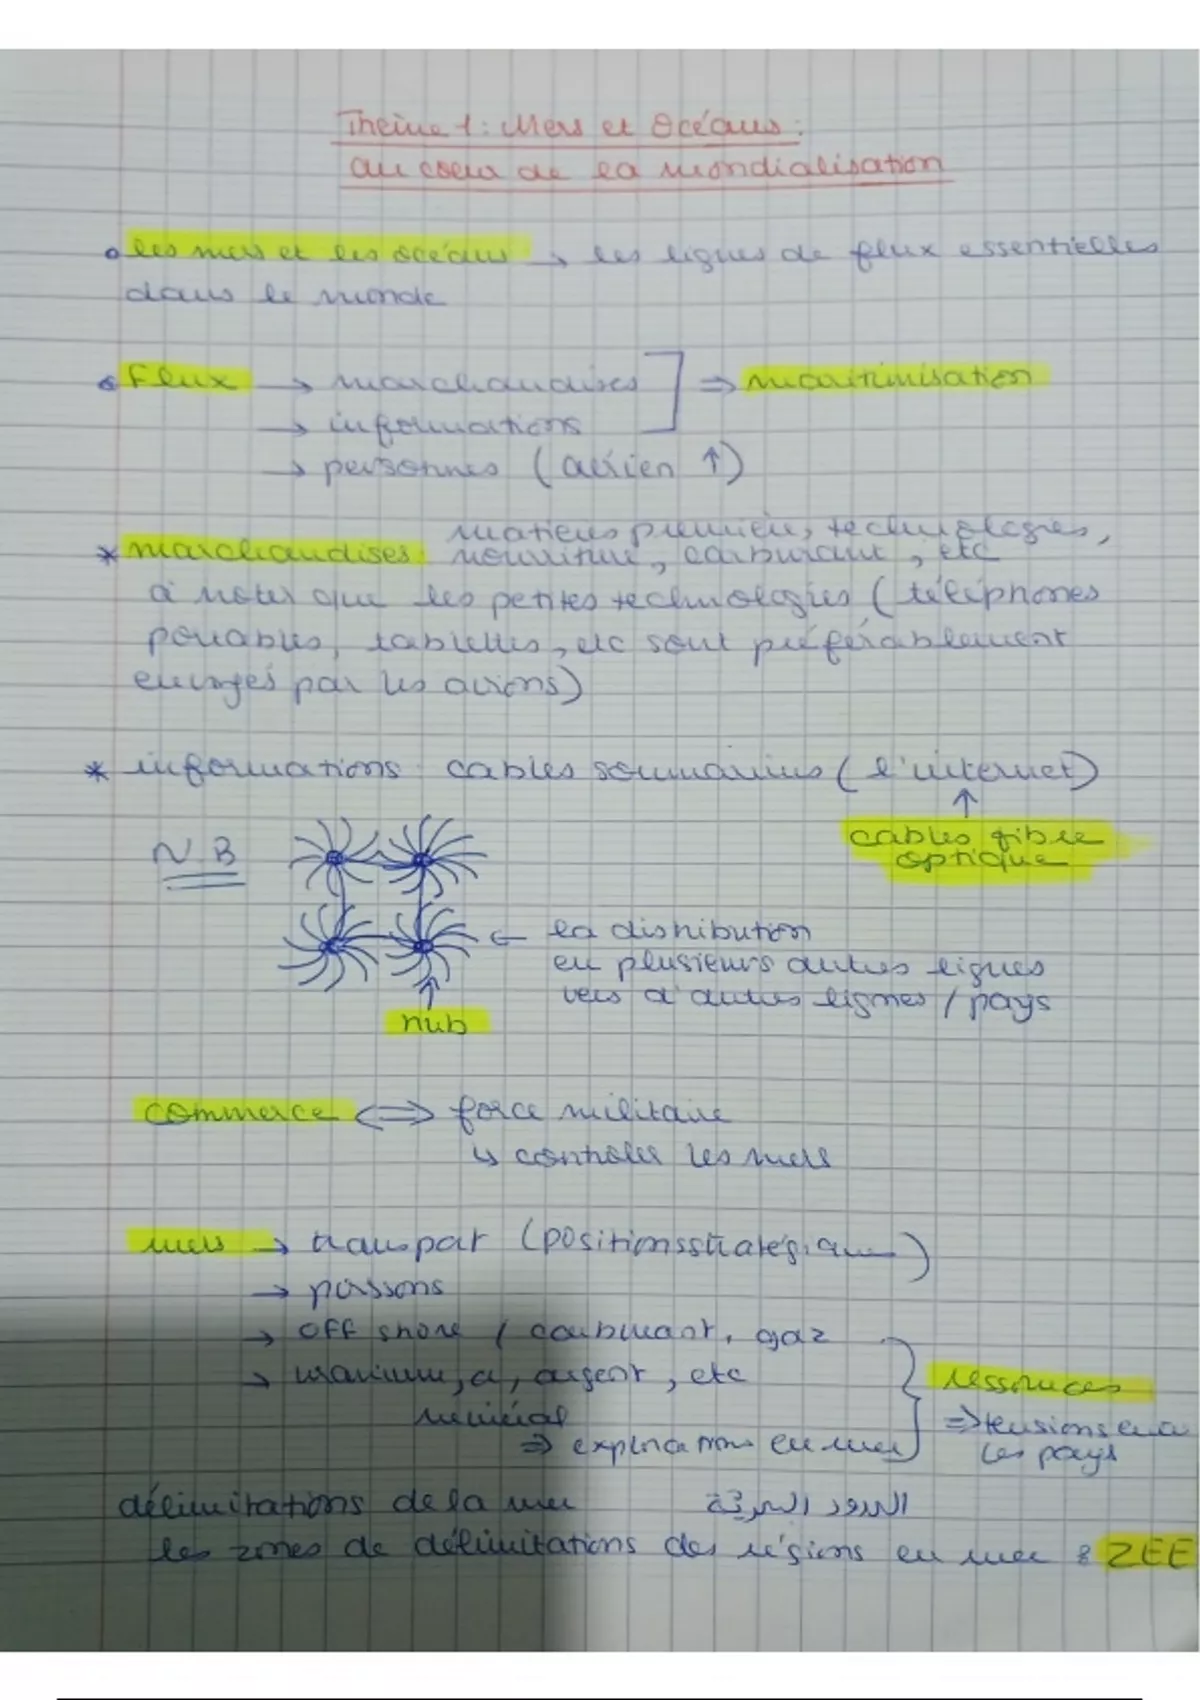 Thème 1 : Mers et Océans :
au coeur de la mondialisation
les mers et les océans → les lignes de flux essentielles
dans le monde
Flux → marchandises ⇒ maritimisation
→ informations
→ personnes (aérien ↑)
matières première, technologies,
* marchandises : nourriture, carburant, etc
à noter que les petites technologies (téléphones
portables, tablettes, etc sont préférablement
envoyés par les avions)
* informations : cables sousmarins (l'internet)
↑
cables fibre
optique
N.B
← la distribution
en plusieurs autres lignes
vers d'autres lignes / pays
↑
hub
commerce ⇔ force militaire
↳ controler les mers
mers → transport (positions stratégique)
→ poissons
→ off shore / carburant, gaz
→ uranium, or, argent, etc
minéral
⇒ explorations en mer
ressources
⇒ tensions
les pays
délimitations de la mer
les zones de délimitations des régions en mer : ZEE